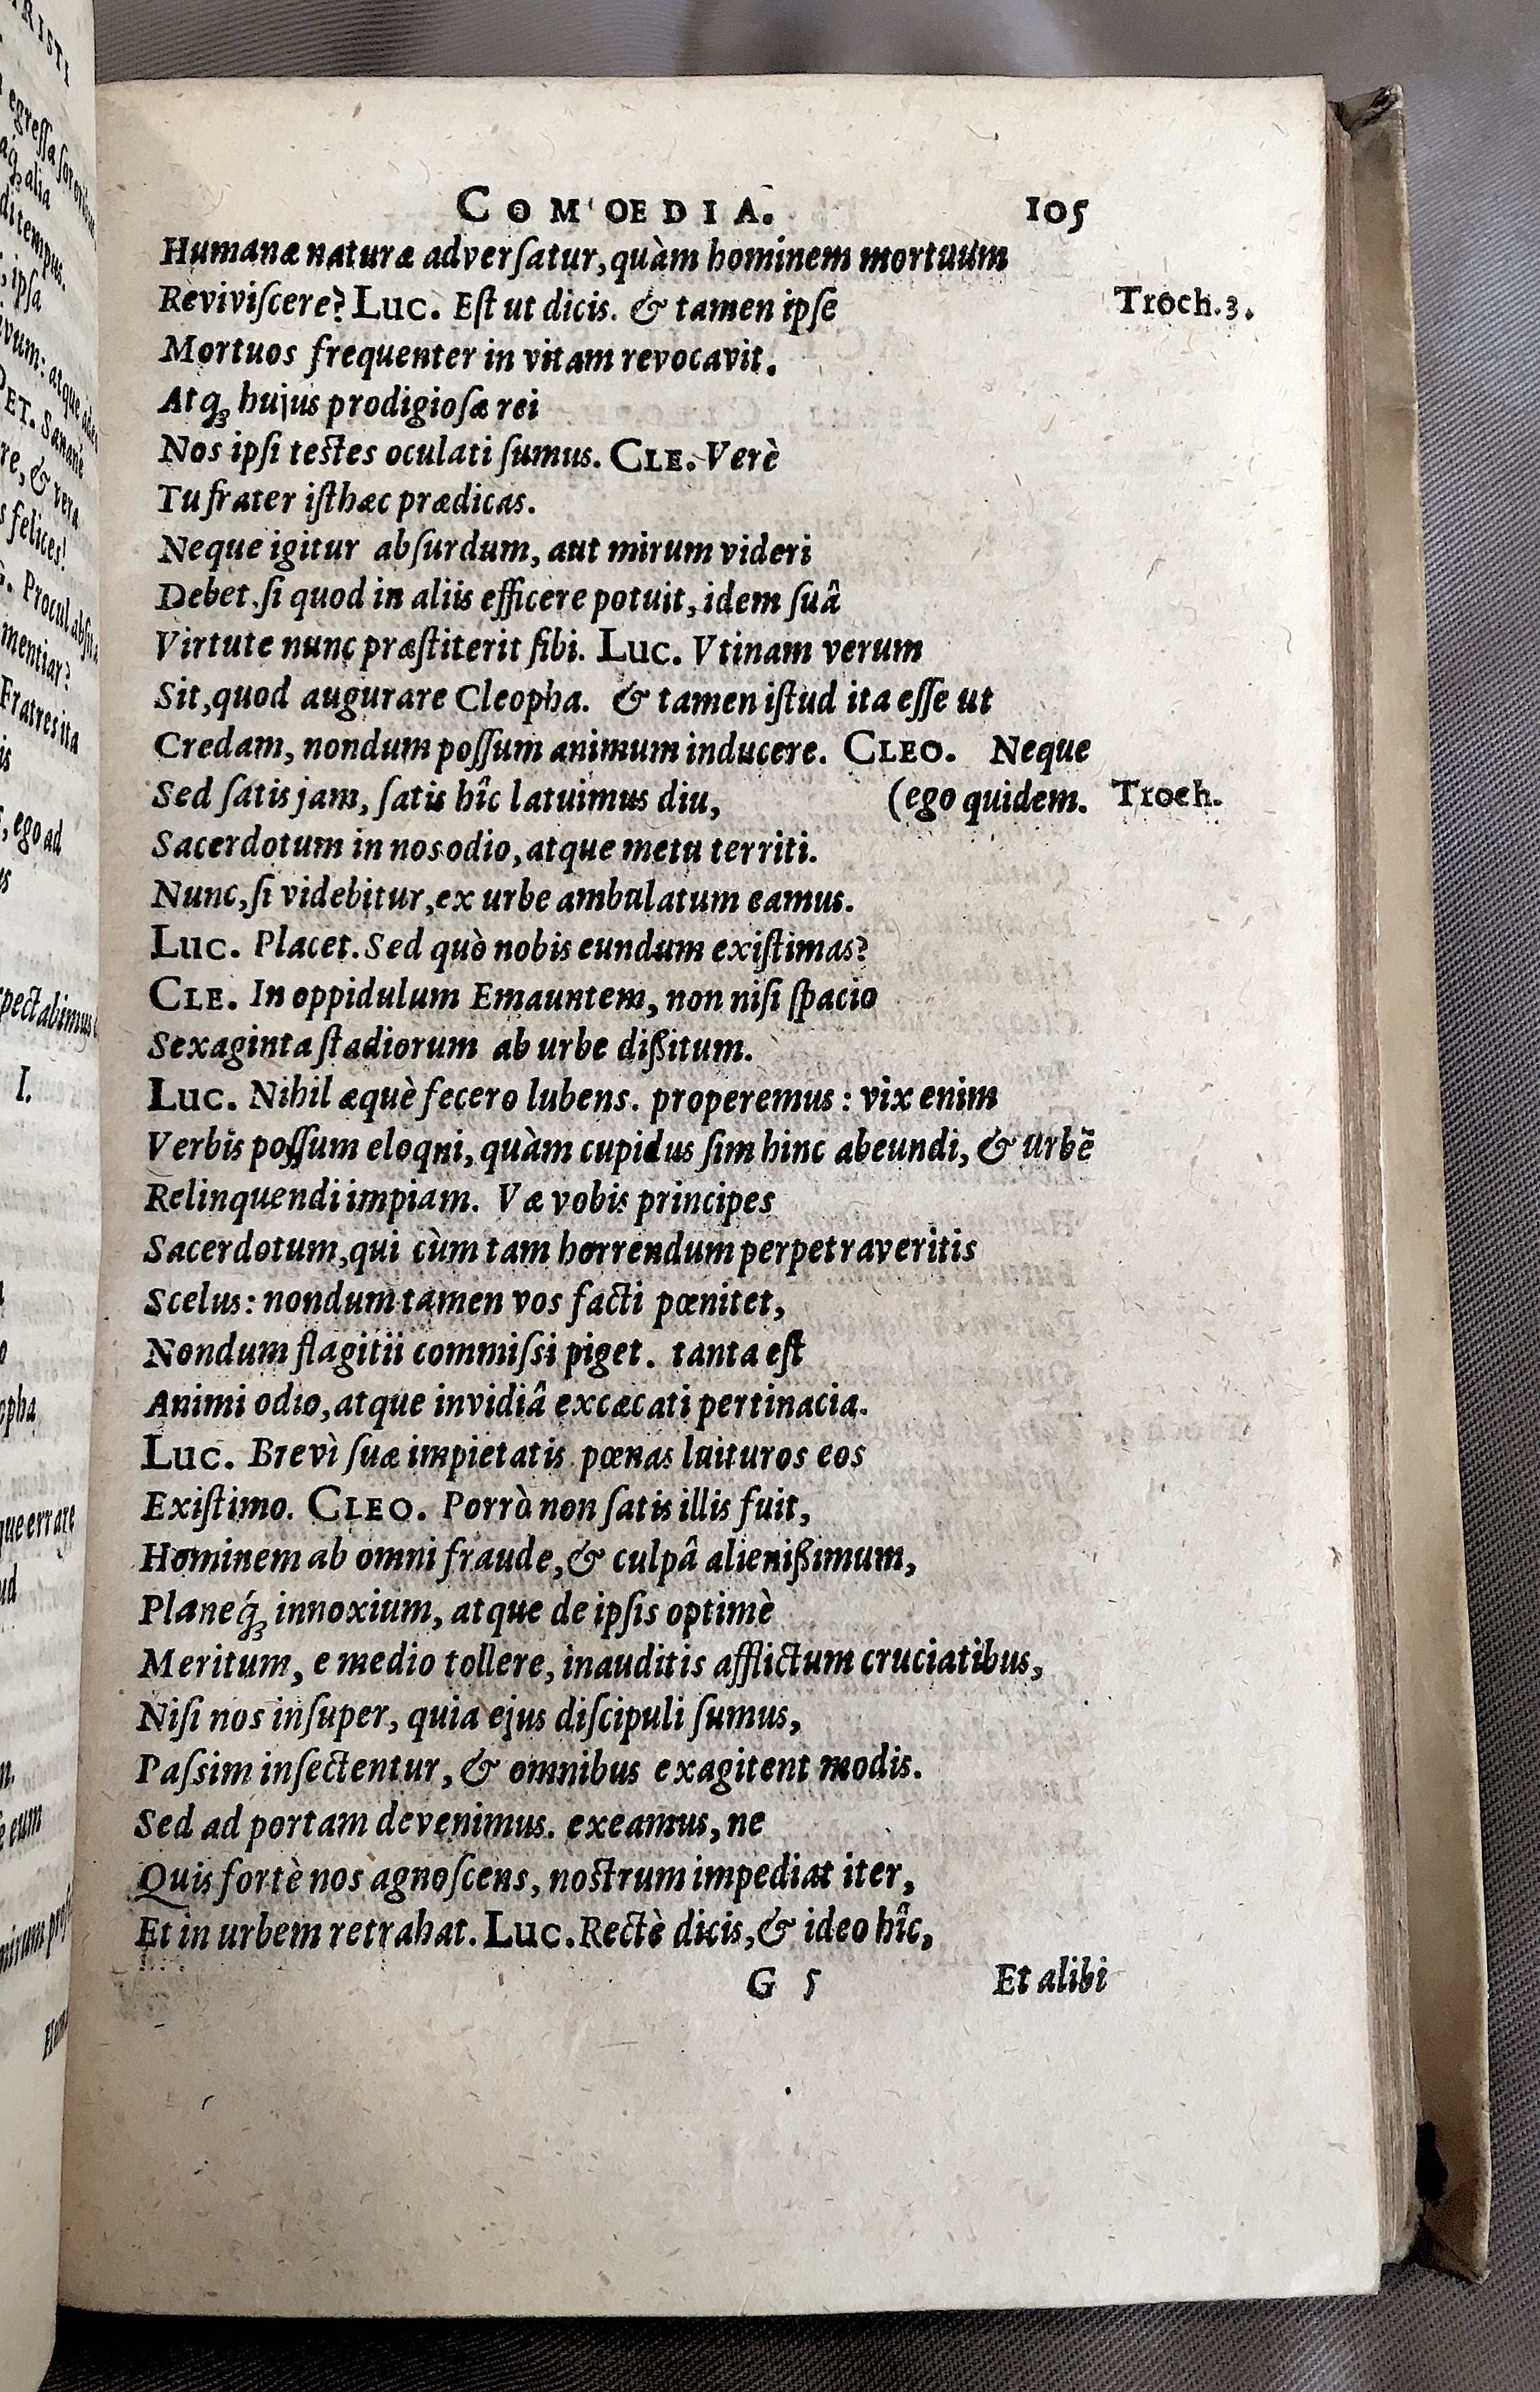 TRISTI
egreſſa
aq́ꝫ alia
di tempus.
, ipſa
evum: atque
DET. Sanané
re, & vera
s felices!
Procul
mentiar?
Fratres ita
is
, ego ad
us
ſpectabimus
I.
opha
que errare
ud
n.
e eum
COMOEDIA. 105
Humanæ naturæ adverſatur, quàm hominem mortuum
Reviviſcere? Luc. Eſt ut dicis. & tamen ipſe Troch.3.
Mortuos frequenter in vitam revocavit.
Atq́ꝫ hujus prodigioſæ rei
Nos ipſi teſtes oculati ſumus. CLE. Verè
Tu frater iſthæc prædicas.
Neque igitur abſurdum, aut mirum videri
Debet. ſi quod in aliis efficere potuit, idem ſuâ
Virtute nunc præſtiterit ſibi. Luc. Vtinam verum
Sit, quod augurare Cleopha. & tamen iſtud ita eſſe ut
Credam, nondum poſſum animum inducere. CLEO. Neque
Sed ſatis jam, ſatis hîc latuimus diu, (ego quidem. Troch.
Sacerdotum in nos odio, atque metu territi.
Nunc, ſi videbitur, ex urbe ambulatum eamus.
Luc. Placet. Sed quò nobis eundum exiſtimas?
CLE. In oppidulum Emauntem, non niſi ſpacio
Sexaginta ſtadiorum ab urbe dißitum.
Luc. Nihil æquè fecero lubens. properemus : vix enim
Verbis poſſum eloqni, quàm cupidus ſim hinc abeundi, & urbē
Relinquendi impiam. Væ vobis principes
Sacerdotum, qui cùm tam horrendum perpetraveritis
Scelus: nondum tamen vos facti pœnitet,
Nondum flagitii commiſsi piget. tanta eſt
Animi odio, atque invidiâ excæcati pertinacia.
Luc. Brevì ſuæ impietatis pœnas luituros eos
Exiſtimo. CLEO. Porrò non ſatis illis fuit,
Hominem ab omni fraude, & culpâ alienißimum,
Planeq́ꝫ innoxium, atque de ipſis optimè
Meritum, e medio tollere, inauditis afflictum cruciatibus,
Niſi nos inſuper, quia ejus diſcipuli ſumus,
Paſsim inſectentur, & omnibus exagitent modis.
Sed ad portam devenimus. exeamus, ne
Quis fortè nos agnoſcens, noſtrum impediat iter,
Et in urbem retrahat. Luc. Rectè dicis, & ideo hîc,
G 5 Et alibi